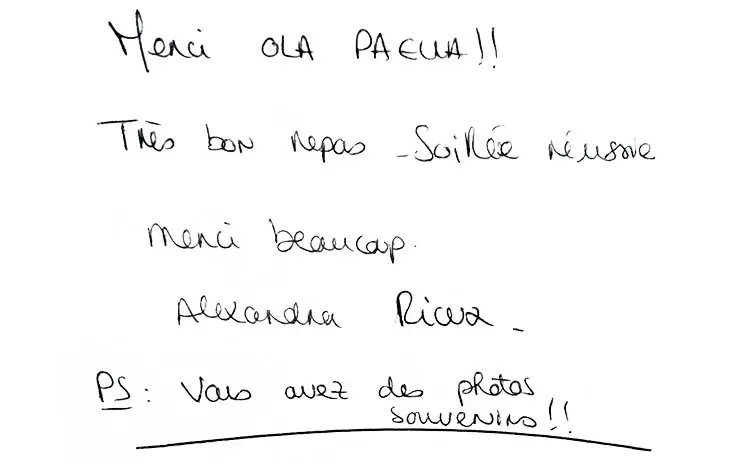 Merci OLA PAELLA!!
Très bon repas - Soirée réussie
merci beaucoup.
Alexandra
PS : Vous avez des photos
souvenirs!!